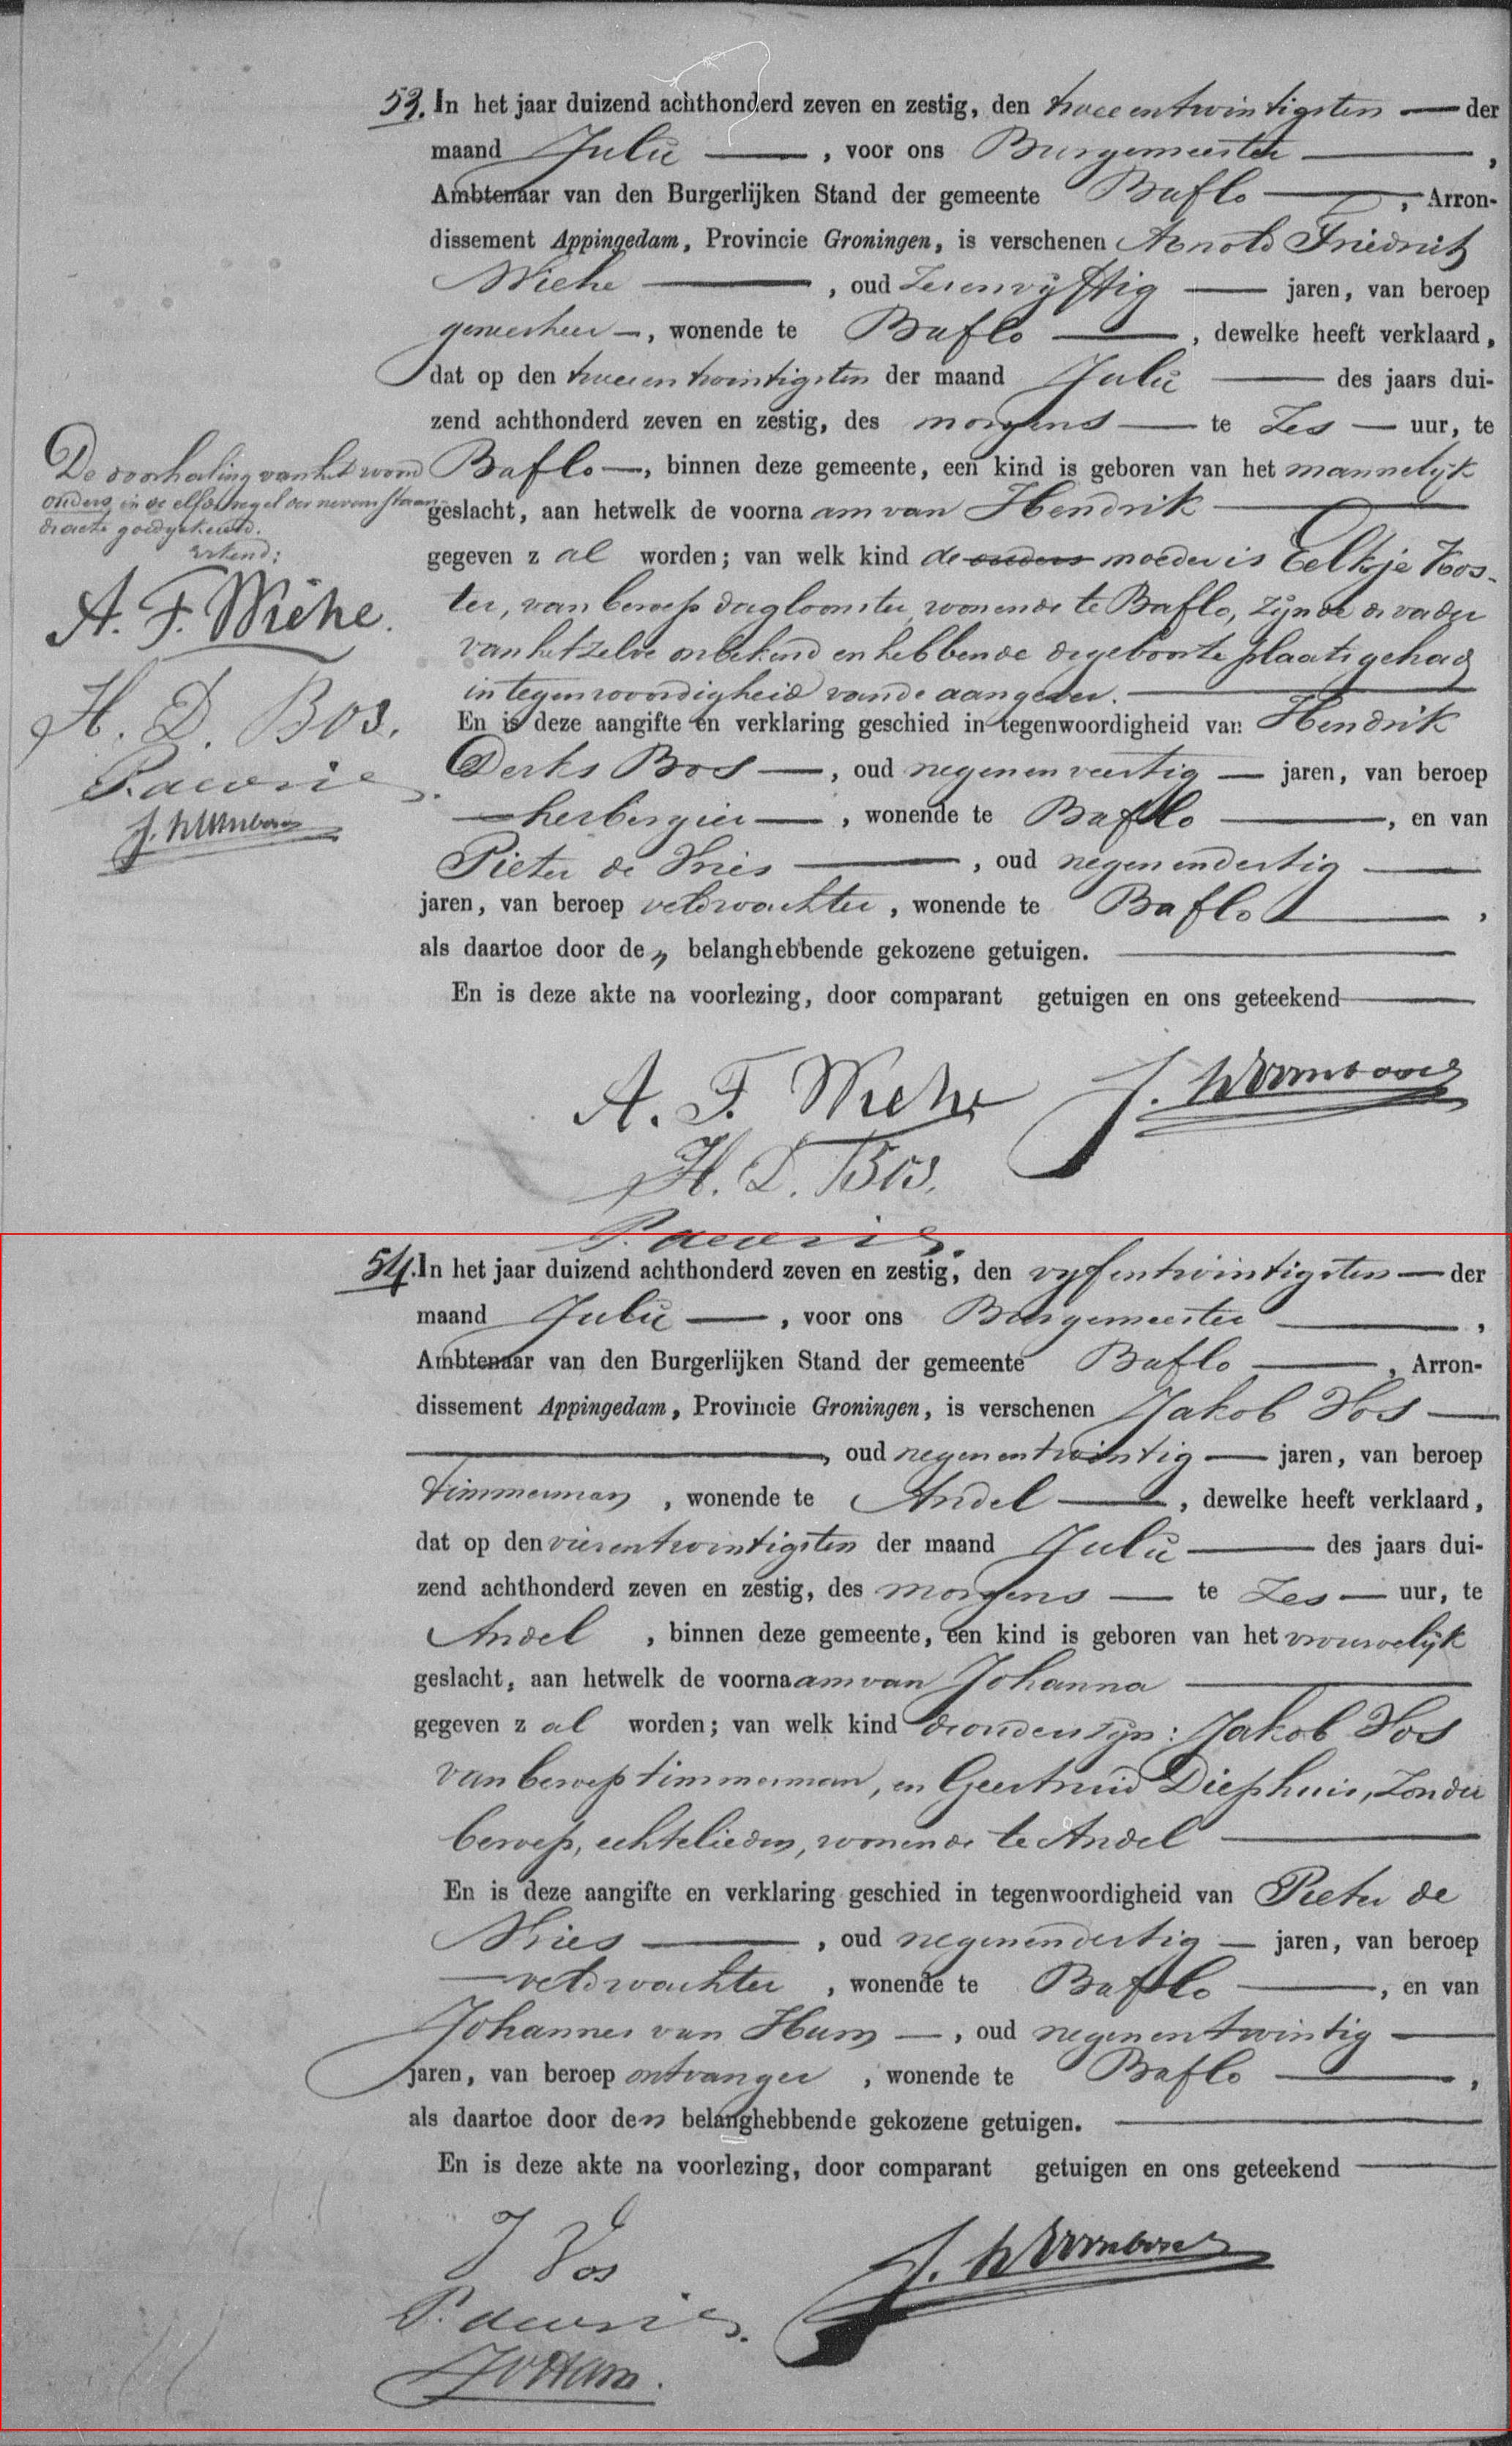 53. In het jaar duizend achthonderd zeven en zestig, den twee entwintigsten — der
maand Julij —, voor ons Burgemeester —,
Ambtenaar van den Burgerlijken Stand der gemeente Baflo —, Arron-
dissement Appingedam, Provincie Groningen, is verschenen Arnold Friedrich
Wiehe —, oud zesenvijftig — jaren, van beroep
geneesheer —, wonende te Baflo —, dewelke heeft verklaard,
dat op den tweeentwintigsten der maand Julij — des jaars dui-
zend achthonderd zeven en zestig, des morgens — te Zes — uur, te
Baflo —, binnen deze gemeente, een kind is geboren van het mannelijk
geslacht, aan hetwelk de voorna am van Hendrik —
gegeven z al worden; van welk kind de ouders moeder is Eelkje Kos-
ter, van beroep dagloonster, wonende te Baflo, zijnde de vader
van hetzelve onbekend en hebbende de geboorte plaats gehad
in tegenwoordigheid van de aangever. —
En is deze aangifte en verklaring geschied in tegenwoordigheid van Hendrik
Derks Bos —, oud negenenveertig — jaren, van beroep
— herbergier —, wonende te Baflo —, en van
Pieter de Vries —, oud negenendertig —
jaren, van beroep veldwachter, wonende te Baflo —,
als daartoe door den belanghebbende gekozene getuigen. —
En is deze akte na voorlezing, door comparant getuigen en ons geteekend —
A. F. Wiehe
H. D. Bos.
P. de Vries.
De doorhaling van het woord
ouders in de elfde regel der nevenstaan-
de acte goedgekeurd.
A. F. Wiehe.
H. D. Bos.
P. de Vries.
54. In het jaar duizend achthonderd zeven en zestig, den vyfentwintigsten — der
maand Julij —, voor ons Burgemeester —,
Ambtenaar van den Burgerlijken Stand der gemeente Baflo —, Arron-
dissement Appingedam, Provincie Groningen, is verschenen Jakob Vos —
—, oud negenentwintig — jaren, van beroep
timmerman, wonende te Andel —, dewelke heeft verklaard,
dat op den vierentwintigsten der maand Julij — des jaars dui-
zend achthonderd zeven en zestig, des morgens — te Zes — uur, te
Andel, binnen deze gemeente, een kind is geboren van het vrouwelijk
geslacht, aan hetwelk de voorna am van Johanna —
gegeven z al worden; van welk kind de ouders zijn: Jakob Vos
van beroep timmerman, en Geertruid Diephuis, zonder
beroep, echtelieden, wonende te Andel —
En is deze aangifte en verklaring geschied in tegenwoordigheid van Pieter de
Vries —, oud negenendertig — jaren, van beroep
— veldwachter, wonende te Baflo —, en van
Johannes van Ham —, oud negenentwintig —
jaren, van beroep ontvanger, wonende te Baflo —,
als daartoe door den belanghebbende gekozene getuigen. —
En is deze akte na voorlezing, door comparant getuigen en ons geteekend —
J Vos
P. de Vries.
J v Ham.